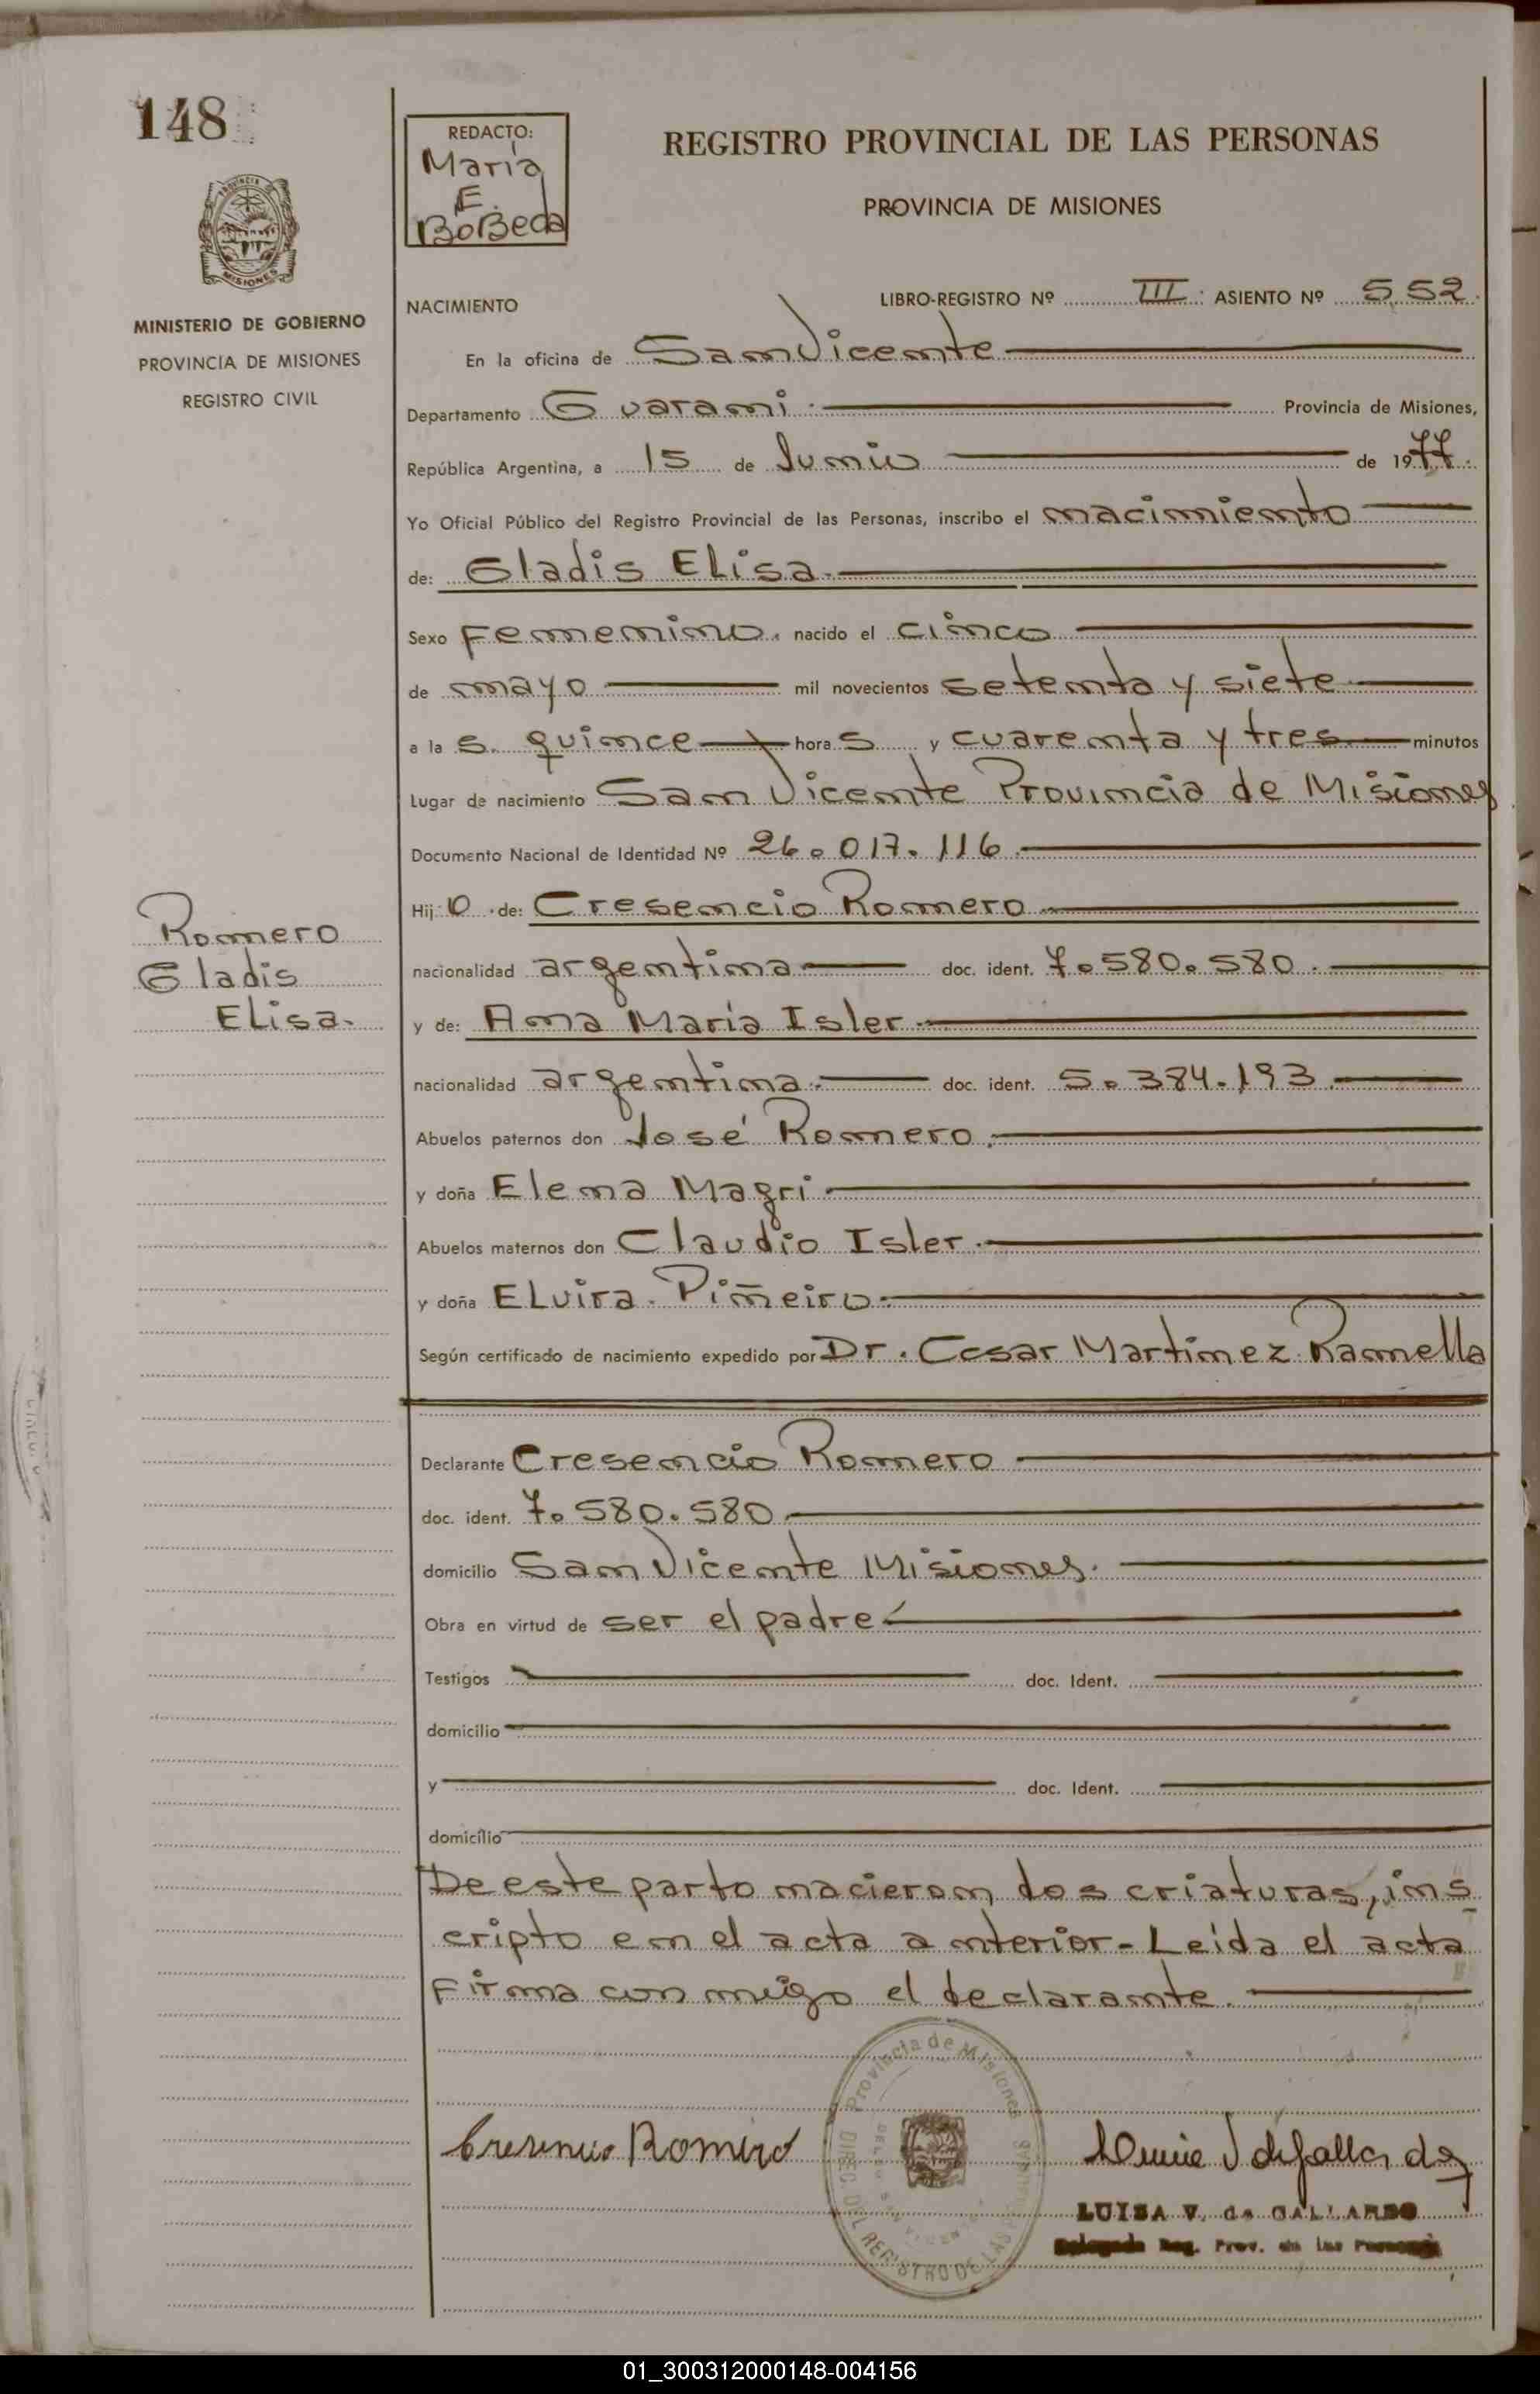 148
REDACTO:
María
E.
BoBeda
REGISTRO PROVINCIAL DE LAS PERSONAS
PROVINCIA DE MISIONES
PROVINCIA
MISIONES
MINISTERIO DE GOBIERNO
PROVINCIA DE MISIONES
REGISTRO CIVIL
NACIMIENTO LIBRO-REGISTRO Nº III. ASIENTO Nº 552.
En la oficina de San Vicente
Departamento Guarani. Provincia de Misiones,
República Argentina, a 15 de Junio de 1977.
Yo Oficial Público del Registro Provincial de las Personas, inscribo el nacimiento
de: Gladis Elisa.
Sexo Femenino. nacido el cinco
de mayo mil novecientos setenta y siete
a la s. quince hora s y cuarenta y tres minutos
Lugar de nacimiento San Vicente Provincia de Misiones
Documento Nacional de Identidad Nº 26.017.116.
Hij o de: Cresencio Romero
nacionalidad argentina doc. ident. 7.580.580.
y de: Ana María Isler.
nacionalidad argentina. doc. ident. 5.384.193.
Abuelos paternos don José Romero.
y doña Elena Magri
Abuelos maternos don Claudio Isler.
y doña ELvira Piñeiro.
Según certificado de nacimiento expedido por Dr. Cesar Martinez Ramella
Romero
Gladis
Elisa.
Declarante Cresencio Romero
doc. ident. 7.580.580
domicilio San Vicente Misiones.
Obra en virtud de ser el padre
Testigos doc. Ident.
domicilio
y doc. Ident.
domicilio
De este parto nacieron dos criaturas, ins
cripto en el acta anterior - Leida el acta
Firma con migo el declarante.
Provincia de Misiones
DIREC. DEL REGISTRO DE LAS PERSONAS
Cresencio Romero
LUISA V. de GALLARDO
Delegada Reg. Prov. de las Personas
01_300312000148-004156